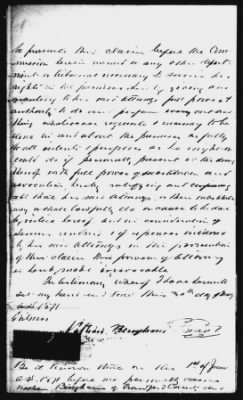 to presents this claim before the Com-
mission herein named or any other depart-
ment or tribunal necessary to secure his
rights in the premises hereby giving and
granting to his said attorneys full power &
authority to do and perform every act and
thing whatsoever requisite & necessary to be
done in and about the premises as fully
to all intents & purposes as he might or
could do if personally present at the doing
thereof with full power of substitution and
revocation hereby ratifying and confirming
all that his said attorneys or their substitutes
may or shall lawfully do or cause to be done
by virtue hereof and in consideration of
services rendered & expenses incurred
by his said attorneys in the prosecution
of this claim this power of attorney
is hereby made irrevocable
In testimony whereof I have hereunto
set my hand and seal this 30th day of May
A.D. 1871
Witness
Be it known that on the 1st of June
A.D. 1871 before me personally came